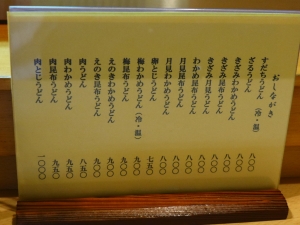 おしながき
すだちうどん（冷・温） 八〇〇
ざるうどん 八〇〇
きざみわかめうどん 八〇〇
きざみ月見うどん 八〇〇
わかめ昆布うどん 八〇〇
月見昆布うどん 八〇〇
月見わかめうどん 八〇〇
卵とじうどん 七五〇
梅わかめうどん（冷・温） 九〇〇
梅昆布うどん 九〇〇
えのきわかめうどん 九〇〇
えのき昆布うどん 九〇〇
肉うどん 八五〇
肉わかめうどん 九五〇
肉昆布うどん 九五〇
肉とじうどん 一〇〇〇